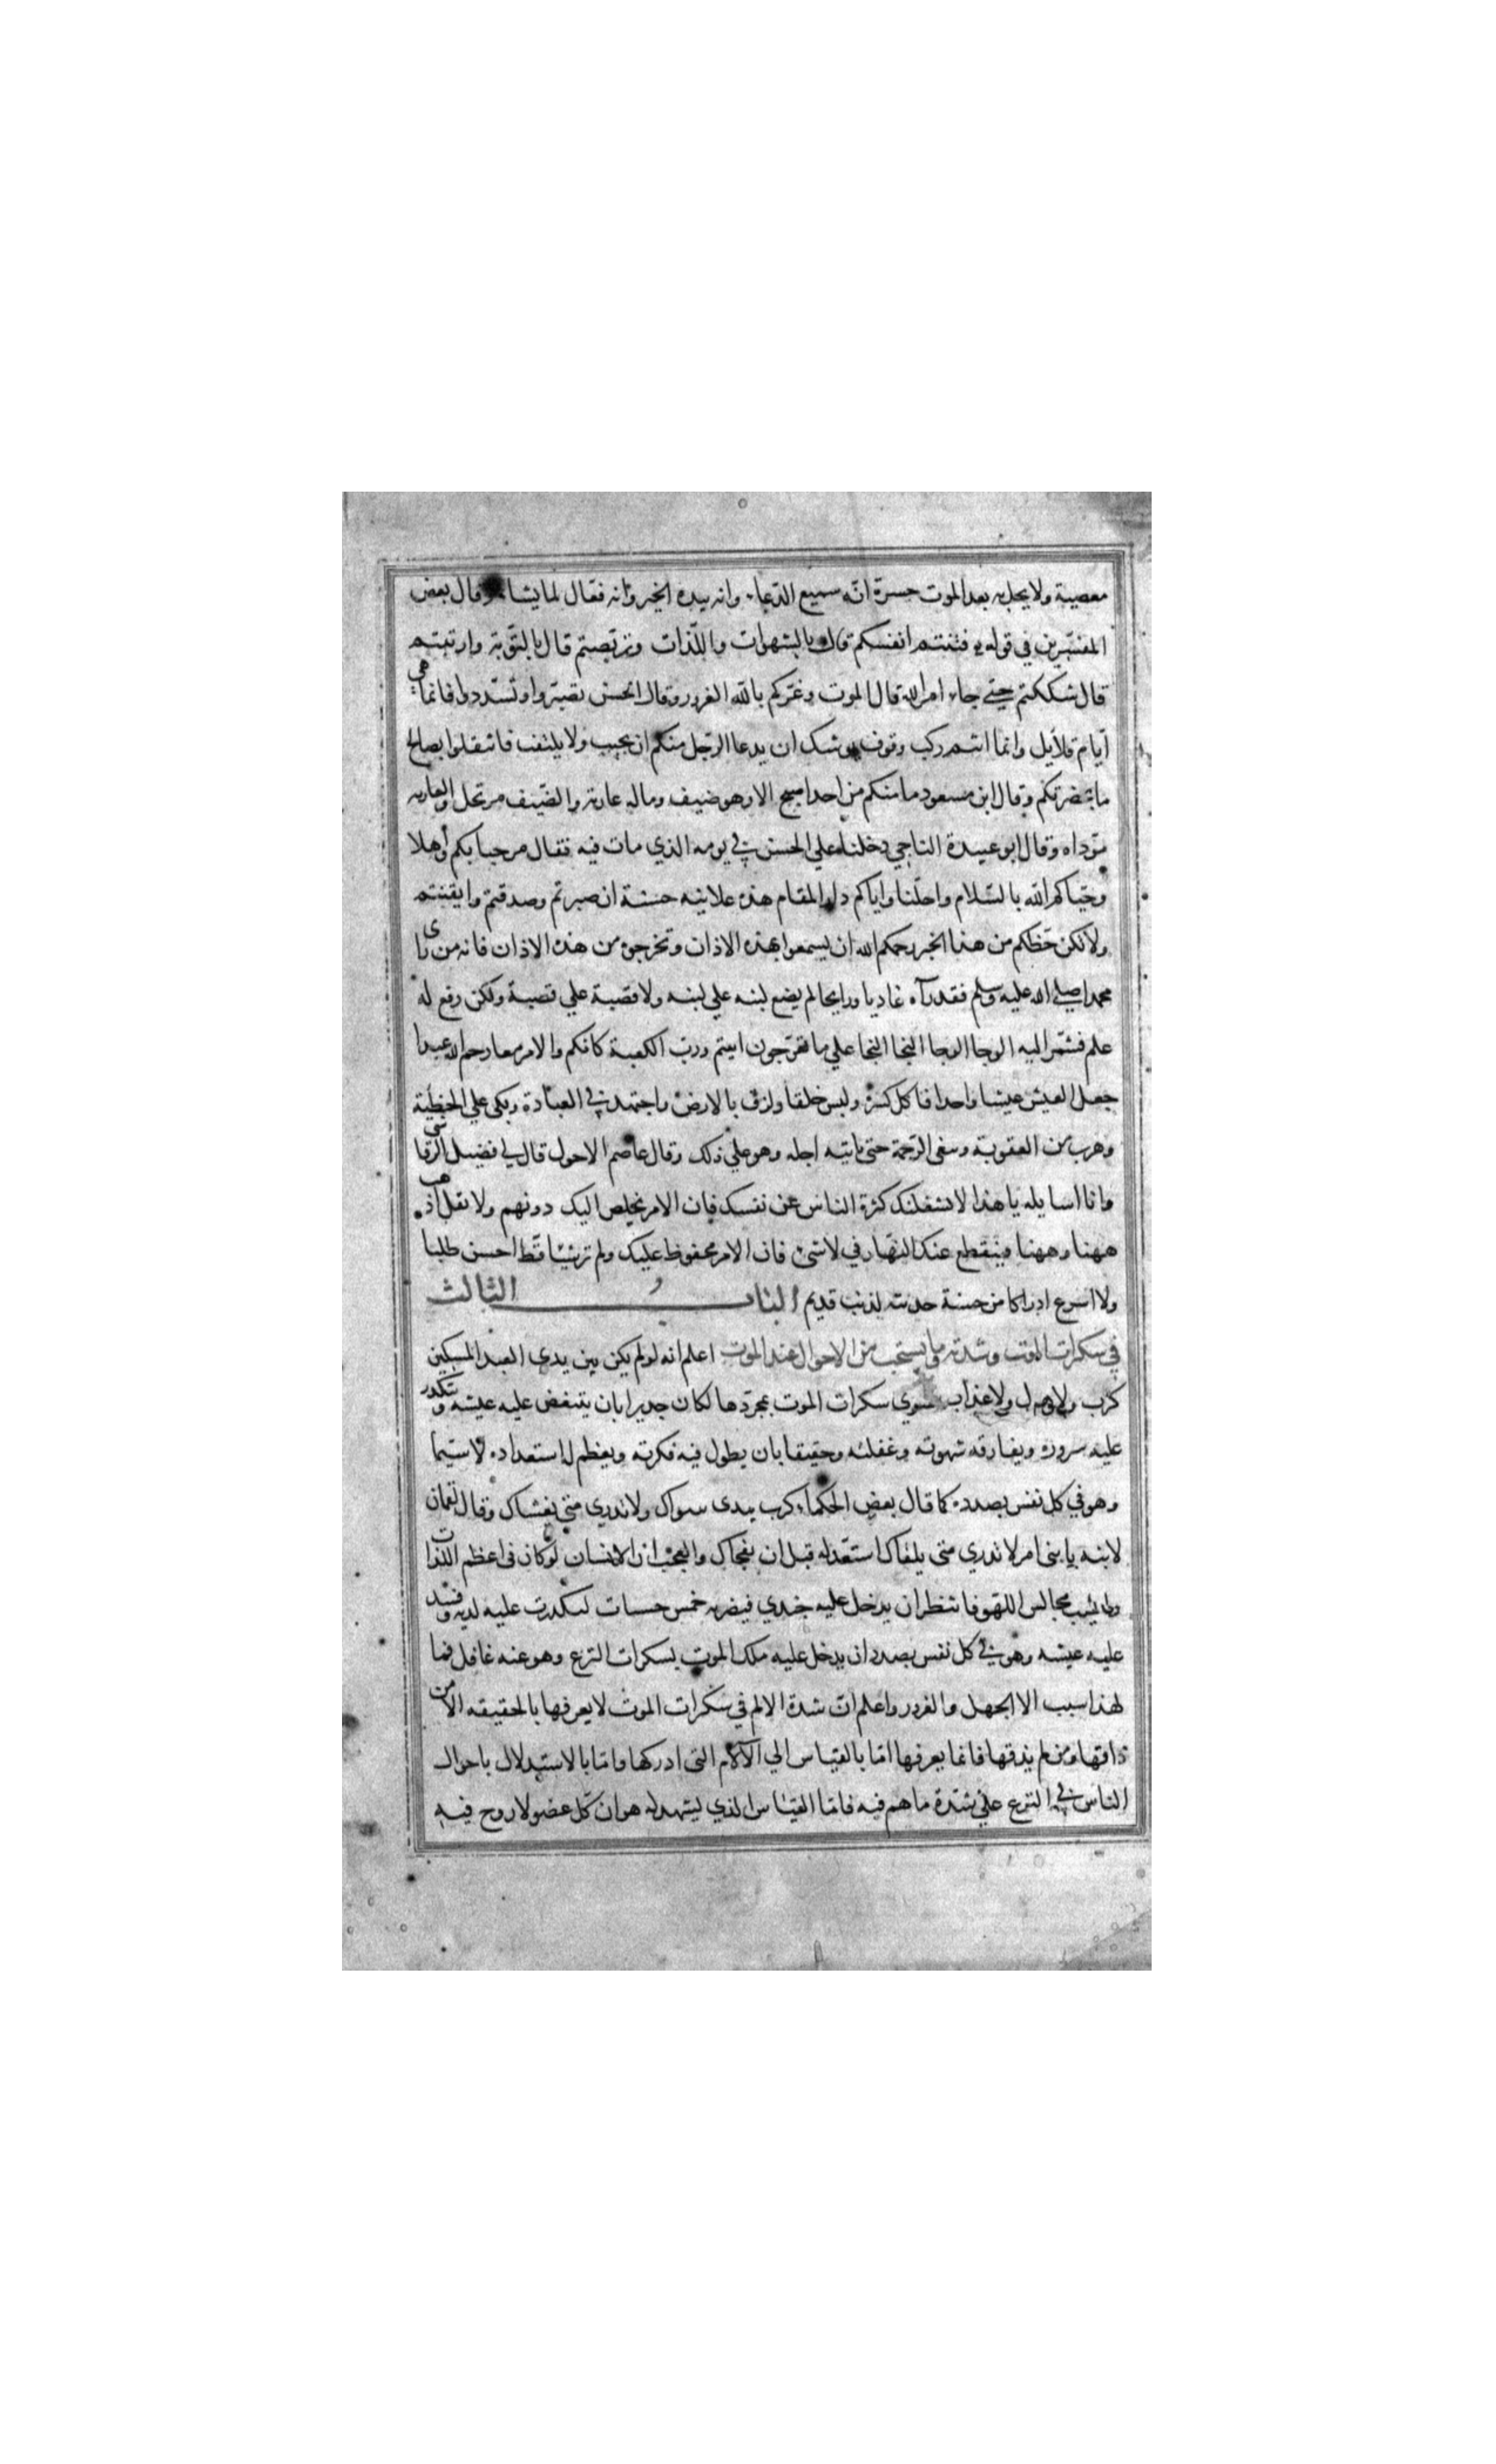 معصية ولا يحل به بعد الموت حسرة انه سميع الدعاء وانه بيده الخير وانه فعال لما يشاء وقال بعض
المفسرين في قوله فتنتم انفسكم قال بالشهوات واللذات وتربصتم قال بالتوبة وارتبتم
قال شككتم حتى جاء امر الله قال الموت وغركم بالله الغرور وقال الحسن تصبروا وتشددوا فانما هي
ايام قلايل وانما انتم ركب وقوف يوشك ان يدعا الرجل منكم ان يجيب ولا يلتفت فانتقلوا بصالح
ما بحضرتكم وقال ابن مسعود ما منكم من احد اصبح الا وهو ضيف وماله عارية والضيف مرتحل والعاريه
مؤداه وقال ابو عبيدة الناجي دخلنا علي الحسن في يومه الذي مات فيه فقال مرحبا بكم واهلا
وحياكم الله بالسلام واحلنا واياكم دار المقام هذه علانيه حسنة ان صبرتم وصدقتم وايقنتم
ولا تكن حظكم من هذا الخبر رحمكم الله ان يسمعوا بهذه الاذان وتخرجوه من هذه الاذان فانه من راى
محمدا صلي الله عليه وسلم فقد رآه غاديا ورايحا لم يضع لبنه علي لبنه ولا قصبة علي قصبة ولكن رفع له
علم فشمر اليه الوحا الوحا النجا النجا علي ما تعرجون اتيتم ورب الكعبة كانكم والامر معا رحم الله عبدا
جعل العيش عيشا واحدا فاكل كسرة ولبس خلقا ولزق بالارض واجتهد في العبادة وبكى علي الخطيئة
وهرب من العقوبة وبغى الرحمة حتى ياتيه اجله وهو علي ذلك وقال عاصم الاحول قال لي فضيل الرقاشي
وانا اسايله يا هذا لا تشغلنك كثرة الناس عن نفسك فان الامر يخلص اليك دونهم ولا تقل اذهب
ههنا وههنا فينقطع عنك النهار في لا شئ فان الامر محفوظ عليك ولم تر شيئا قط احسن طلبا
ولا اسرع ادراكا من حسنة حديثه لذنب قديم الباب الثالث
في سكرات الموت وشدته وما يستحب من الاحوال عند الموت اعلم انه لو لم يكن بين يدي العبد المسكين
كرب ولا هول ولا عذاب سوي سكرات الموت بمجردها لكان جديرا بان يتنغص عليه عيشه وتتكدر
عليه سروره ويفارقه شهوته وغفلته وحقيقا بان يطول فيه فكرته ويعظم له استعداده لا سيما
وهو في كل نفس بصدده كما قال بعض الحكماء كرب بيدى سواك ولا تدري متي يغشاك وقال لقمان
لابنه يا بنى امر لا تدري متى يلقاك استعد له قبل ان يفجاك والعجب ان الانسان لو كان فى اعظم اللذات
واطيب مجالس اللهو فانتظر ان يدخل عليه جندي فيضربه خمس خشبات لتكدرت عليه لذته وفسد
عليه عيشه وهو في كل نفس بصدد ان يدخل عليه ملك الموت بسكرات النزع وهو عنه غافل فما
لهذا سبب الا الجهل والغرور واعلم ان شدة الالم في سكرات الموت لا يعرفها بالحقيقه الا من
ذاقها ومن لم يذقها فانما يعرفها اما بالقياس الي الآلام التى ادركها واما بالاستدلال باحوال
الناس في النزع علي شدة ما هم فيه فاما القياس الذي يشهد له هو ان كل عضو لا روح فيه